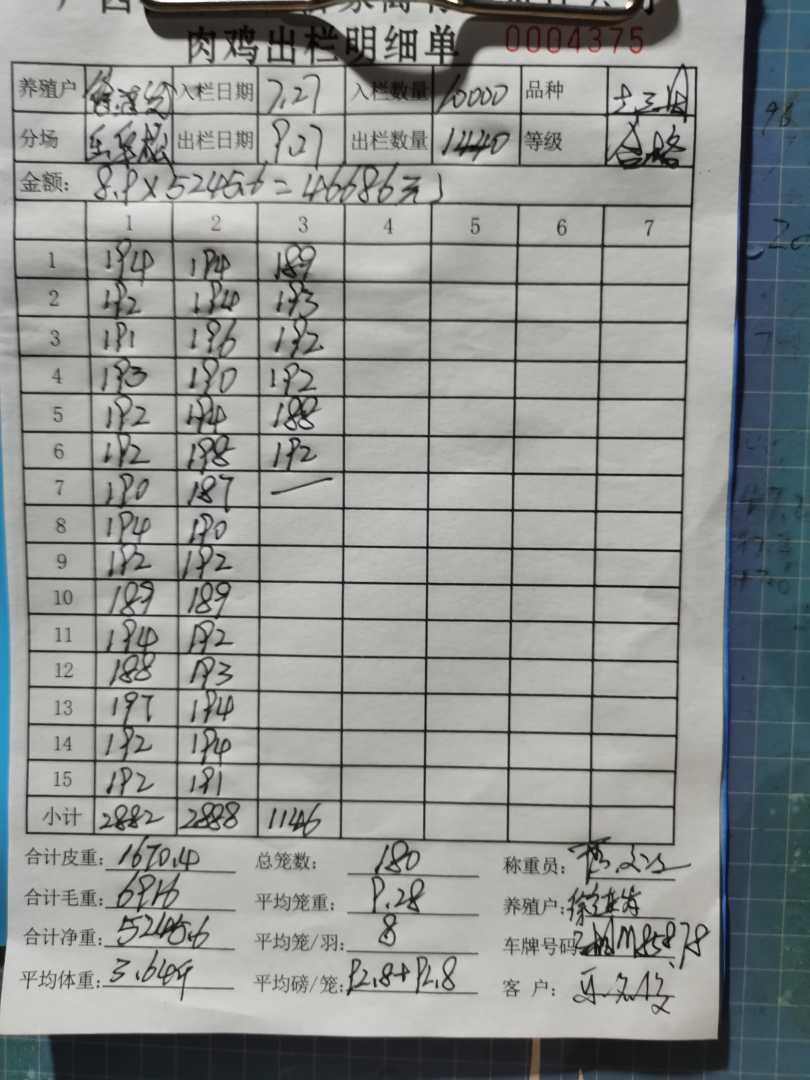 肉鸡出栏明细单 0004375
养殖户 入栏日期 7.27 入栏数量 10000 品种
分场 出栏日期 9.27 出栏数量 1440 等级 合格
金额: 8.9×5245.6=46686元
1 2 3 4 5 6 7
1 194 194 189
2 192 194 193
3 191 196 192
4 193 190 192
5 192 194 188
6 192 198 192
7 190 187 —
8 194 190
9 192 192
10 189 189
11 194 192
12 188 193
13 197 194
14 192 194
15 192 191
小计 2882 2888 1146
合计皮重: 1670.4 总笼数: 180 称重员:
合计毛重: 6916 平均笼重: 9.28 养殖户:
合计净重: 5245.6 平均笼/羽: 8 车牌号码
平均体重: 3.64斤 平均磅/笼: 92.8+92.8 客 户: